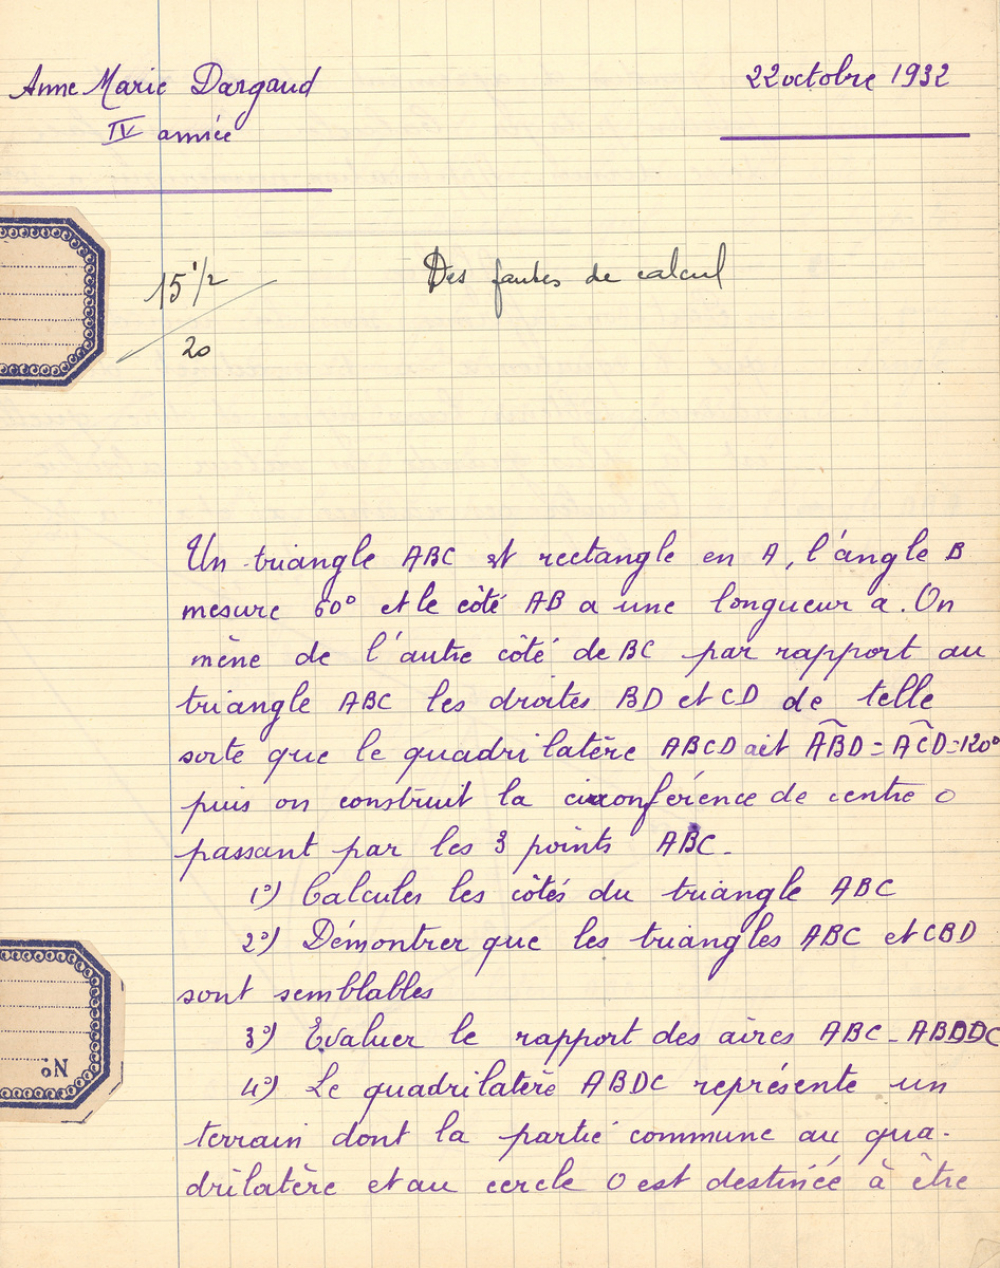 Anne Marie Dargaud
22 octobre 1932
IV année
15 1/2
20
Des fautes de calcul
Un triangle ABC est rectangle en A, l'angle B
mesure 60° et le côté AB a une longueur a. On
mène de l'autre côté de BC par rapport au
triangle ABC les droites BD et CD de telle
sorte que le quadrilatère ABCD ait ABD = ACD = 120°
puis on construit la circonférence de centre O
passant par les 3 points ABC.
1°) Calcules les côtés du triangle ABC
2°) Démontrer que les triangles ABC et CBD
sont semblables
3°) Evaluer le rapport des aires ABC - ABDDC
4°) Le quadrilatère ABDC représente un
terrain dont la partie commune au qua-
drilatère et au cercle O est destinée à être
No